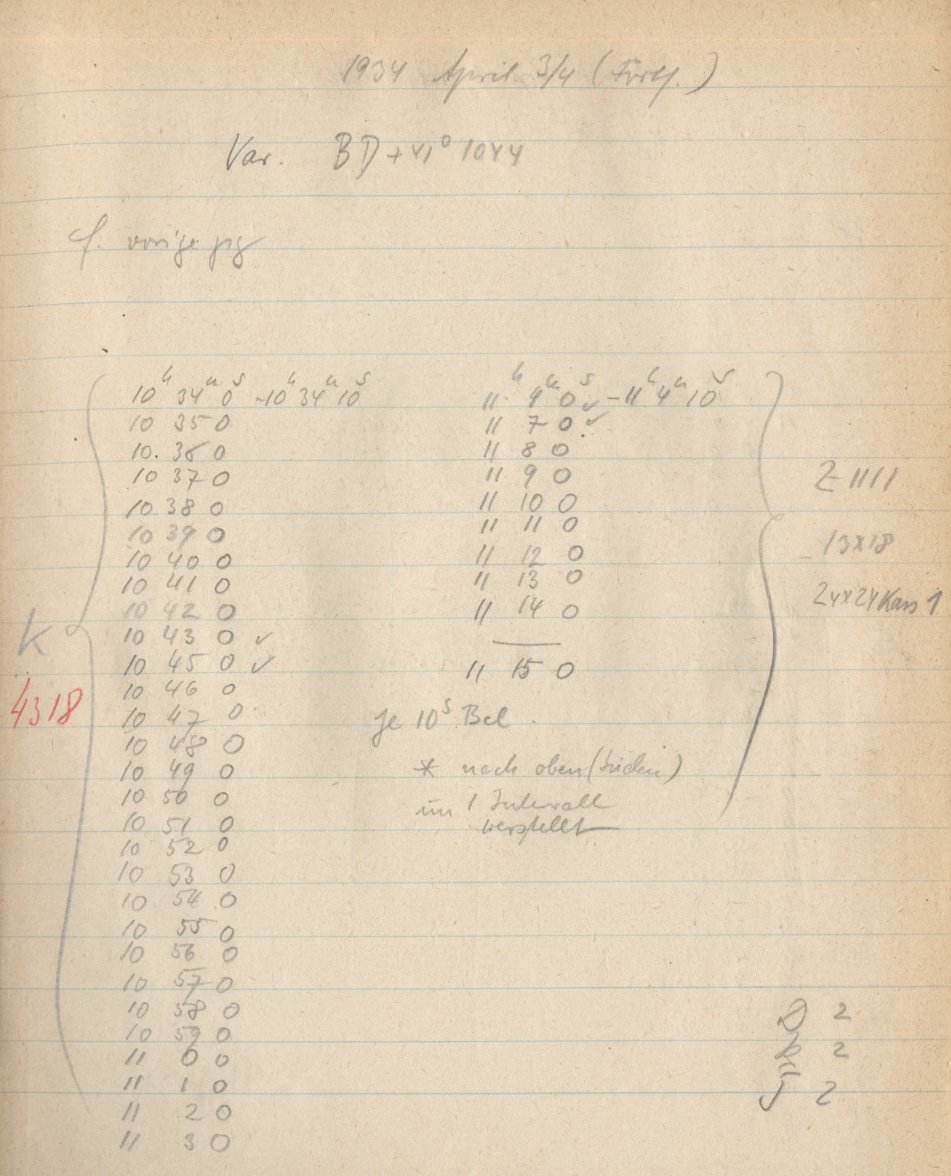 1934 April 3/4 (Forts.)
Var. BD +41° 1044
f. vorige
10ʰ 34ᵐ 0ˢ - 10ʰ 34ᵐ 10ˢ
10 35 0
10. 36 0
10 37 0
10 38 0
10 39 0
10 40 0
10 41 0
10 42 0
10 43 0 ✓
10 45 0 ✓
10 46 0
10 47 0
10 48 0
10 49 0
10 50 0
10 51 0
10 52 0
10 53 0
10 54 0
10 55 0
10 56 0
10 57 0
10 58 0
10 59 0
11 0 0
11 1 0
11 2 0
11 3 0
K
4318
11ʰ 4ᵐ 0ˢ ✓ - 11ʰ 4ᵐ 10ˢ
11 7 0 ✓
11 8 0
11 9 0
11 10 0
11 11 0
11 12 0
11 13 0
11 14 0
11 15 0
je 10ˢ Bel.
* nach oben (Süden)
um 1 Intervall
verstellt
Z 1111
13x18
24x24 Kass 1
D 2
R 2
J 2